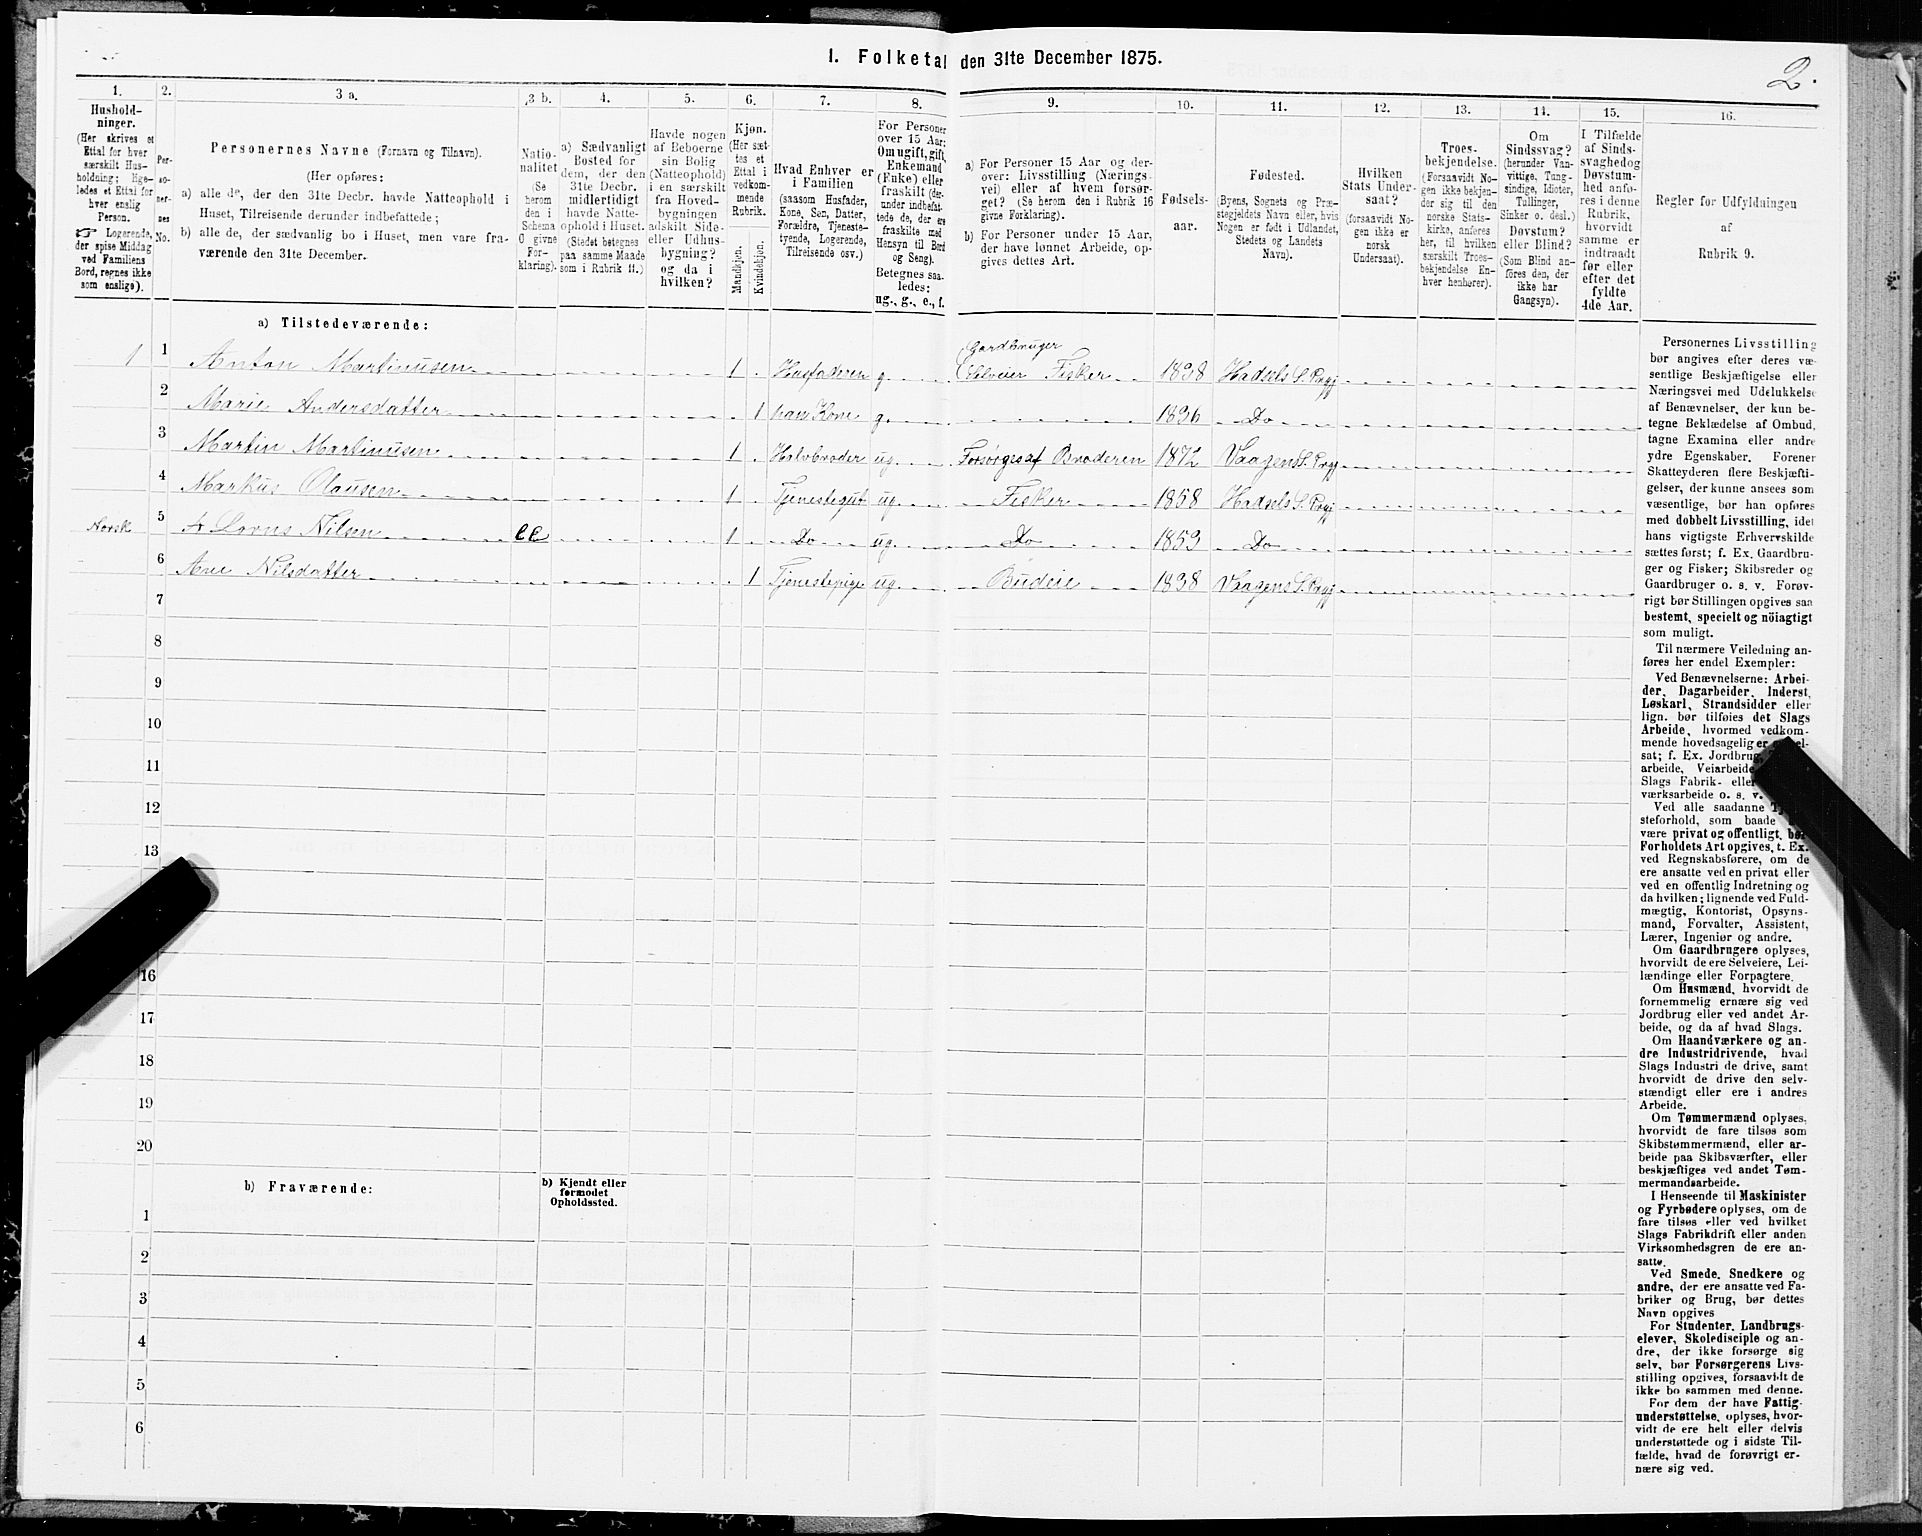 1. Folketal den 31te December 1875.
2.
1.
Hushold-
ninger.
(Her skrives et
Ettal for hver
særskilt Hus-
holdning; lige-
ledes et Ettal for
hver enslig
Person.
☞ Logerende,
der spise Middag
ved Familiens
Bord, regnes ikke
som enslige).
2.
Per-
so-
ner-
nes
No.
3 a.
Personernes Navne (Fornavn og Tilnavn).
(Her opføres:
a) alle de, der den 31te Decbr. havde Natteophold i
Huset, Tilreisende derunder indbefattede;
b) alle de, der sædvanlig bo i Huset, men vare fra-
værende den 31te December.
3 b.
Natio-
nalitet
(Se
herom
den i
Schema
6 givne
For-
klaring).
4.
a) Sædvanligt
Bosted for
dem, der den
31te Decbr.
midlertidigt
havde Natte-
ophold i Huset.
(Stedet betegnes
paa samme Maade
som i Rubrik 11.)
5.
Havde nogen
af Beboerne
sin Bolig
(Natteophold)
i en særskilt
fra Hoved-
bygningen
adskilt Side-
eller Udhus-
bygning?
og da i
hvilken?
6.
Kjøn.
(Her sæt-
tes et
Ettal i
vedkom-
mende
Rubrik.
Mandkjøn.
Kvindekjøn.
7.
Hvad Enhver er
i Familien
(saasom Husfader,
Kone, Søn, Datter,
Forældre, Tjeneste-
tyende, Logerende,
Tilreisende osv.)
8.
For Personer
over 15 Aar:
Om ugift, gift,
Enkemand
(Enke) eller
fraskilt (der-
under indbefat-
tede de, der ere
fraskilte med
Hensyn til Bord
og Seng).
Betegnes saa-
ledes:
ug., g., e., f.
9.
a) For Personer 15 Aar og der-
over: Livsstilling (Nærings-
vei) eller af hvem forsør-
get? (Se herom den i Rubrik 16
givne Forklaring).
b) For Personer under 15 Aar,
der have lønnet Arbeide, op-
gives dettes Art.
10.
Fødsels-
aar.
11.
Fødested.
(Byens, Sognets og Præ-
stegjeldets Navn eller, hvis
Nogen er født i Udlandet,
Stedets og Landets
Navn).
12.
Hvilken
Stats Under-
saat?
(forsaavidt No-
gen ikke er
norsk
Undersaat).
13.
Troes-
bekjendelse.
(Forsaavidt No-
gen ikke bekjen-
der sig til den
norske Stats-
kirke, anføres
her, til hvilken
særskilt Troes-
bekjendelse En-
hver henhører).
14.
Om
Sindssvag?
(herunder Van-
vittige, Tung-
sindige, Idioter,
Tullinger,
Sinker o. desl.)
Døvstum?
eller Blind?
(Som Blind an-
føres den, der
ikke har
Gangsyn).
15.
I Tilfælde
af Sinds-
svaghed og
Døvstum-
hed anfø-
res i denne
Rubrik,
hvorvidt
samme er
indtraadt
før eller
efter det
fyldte
4de Aar.
16.
Regler for Udfyldningen
af
Rubrik 9.
a) Tilstedeværende:
1 1 Anton Martinusen 1 Husfaderen g. Gardbruger Selveier Fisker 1838 Hadsels S. Prgj
2 Marie Andersdatter 1 hans Kone g. 1836 Do
3 Martin Martinusen 1 Halvbroder ug. Forsørges af Broderen 1872 Vaagens S. Prgj
4 Markus Olausen 1 Tjenestegut ug. Fisker 1858 Hadsels S. Prgj
Norsk 5 Nilsen 1 Do ug. Do 1853 Do
6 Ane Nilsdatter 1 Tjenestepige ug. Budeie 1838 Vaagens S. Prgj
7
8
9
10
11
12
13
16
17
18
19
20
b) Fraværende:
b) Kjendt eller
formodet
Opholdssted.
1
2
3
4
5
6
Personernes Livsstilling
bør angives efter deres væ-
sentlige Beskjæftigelse eller
Næringsvei med Udelukkelse
af Benævnelser, der kun be-
tegne Beklædelse af Ombud,
tagne Examina eller andre
ydre Egenskaber. Forener
Skatteyderen flere Beskjæfti-
gelser, der kunne ansees som
væsentlige, bør han opføres
med dobbelt Livsstilling, idet
hans vigtigste Erhvervskilde
sættes først; f. Ex. Gaardbru-
ger og Fisker; Skibsreder og
Gaardbruger o. s. v. Forøv-
rigt bør Stillingen opgives saa
bestemt, specielt og nöiagtigt
som muligt.
Til nærmere Veiledning an-
føres her endel Exempler:
Ved Benævnelserne: Arbei-
der, Dagarbeider, Inderst,
Løskarl, Strandsidder eller
lign. bør tilføies det Slags
Arbeide, hvormed vedkom-
mende hovedsagelig er
sat; f. Ex. Jordbrug,
arbeide, Veiarbeide
Slags Fabrik- eller
værksarbeide o. s. v.
Ved alle saadanne
steforhold, som baade
være privat og offentligt, bør
Forholdets Art opgives, t. Ex.
ved Regnskabsførere, om de
ere ansatte ved en privat eller
ved en offentlig Indretning og
da hvilken; lignende ved Fuld-
mægtig, Kontorist, Opsyns-
mand, Forvalter, Assistent,
Lærer, Ingeniør og andre.
Om Gaardbrugere oplyses,
hvorvidt de ere Selveiere, Lei-
lændinge eller Forpagtere.
Om Husmænd, hvorvidt de
fornemmelig ernære sig ved
Jordbrug eller ved andet Ar-
beide, og da af hvad Slags.
Om Haandværkere og an-
dre Industridrivende, hvad
Slags Industri de drive, samt
hvorvidt de drive den selv-
stændigt eller ere i andres
Arbeide.
Om Tømmermænd oplyses,
hvorvidt de fare tilsøs som
Skibstømmermænd, eller ar-
beide paa Skibsværfter, eller
beskjæftiges ved andet Tøm-
mermandsarbeide.
I Henseende til Maskinister
og Fyrbødere oplyses, om de
fare tilsøs eller ved hvilket
Slags Fabrikdrift eller anden
Virksomhedsgren de ere an-
satte.
Ved Smede, Snedkere og
andre, der ere ansatte ved Fa-
briker og Brug, bør dettes
Navn opgives
For Studenter, Landbrugs-
elever, Skoledisciple og an-
dre, der ikke forsørge sig
selv, bør Forsørgerens Livs-
stilling opgives, forsaavidt de
ikke bo sammen med denne.
For dem der have Fattig-
understøttelse, oplyses, hvor-
vidt de ere helt eller delvis
understøttede og i sidste Til-
fælde, hvad de forøvrigt er-
nære sig ved.